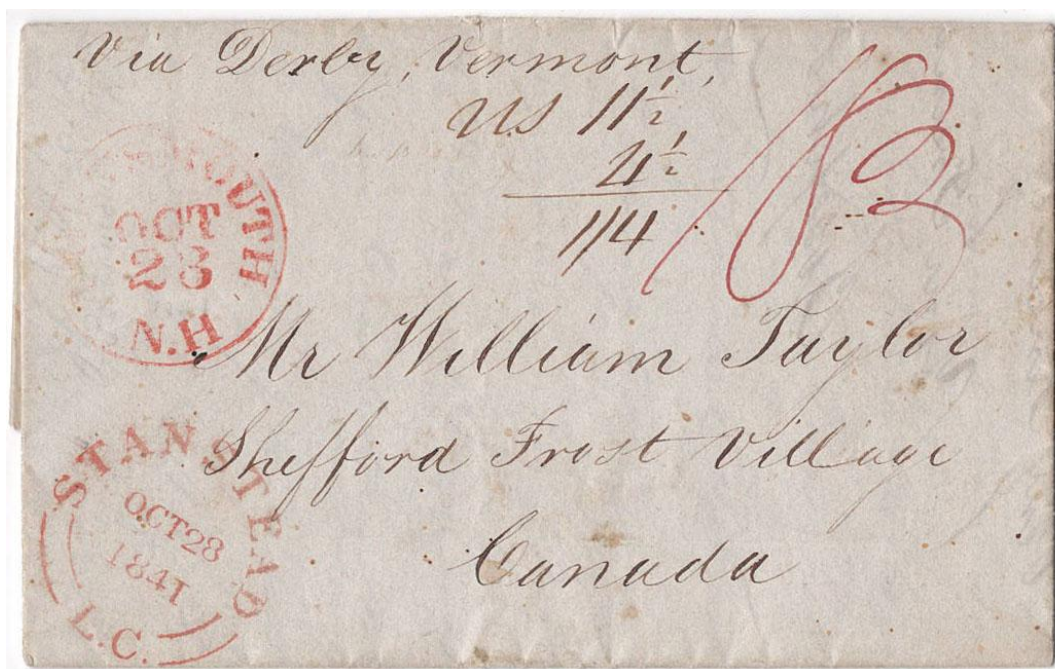 Via Derby, Vermont,
US 11½
4½
1/4
OCT
23
N.H
Mr William Taylor
Shefford Frost Village
Canada
STANSTEAD
OCT 28
1841
L.C.